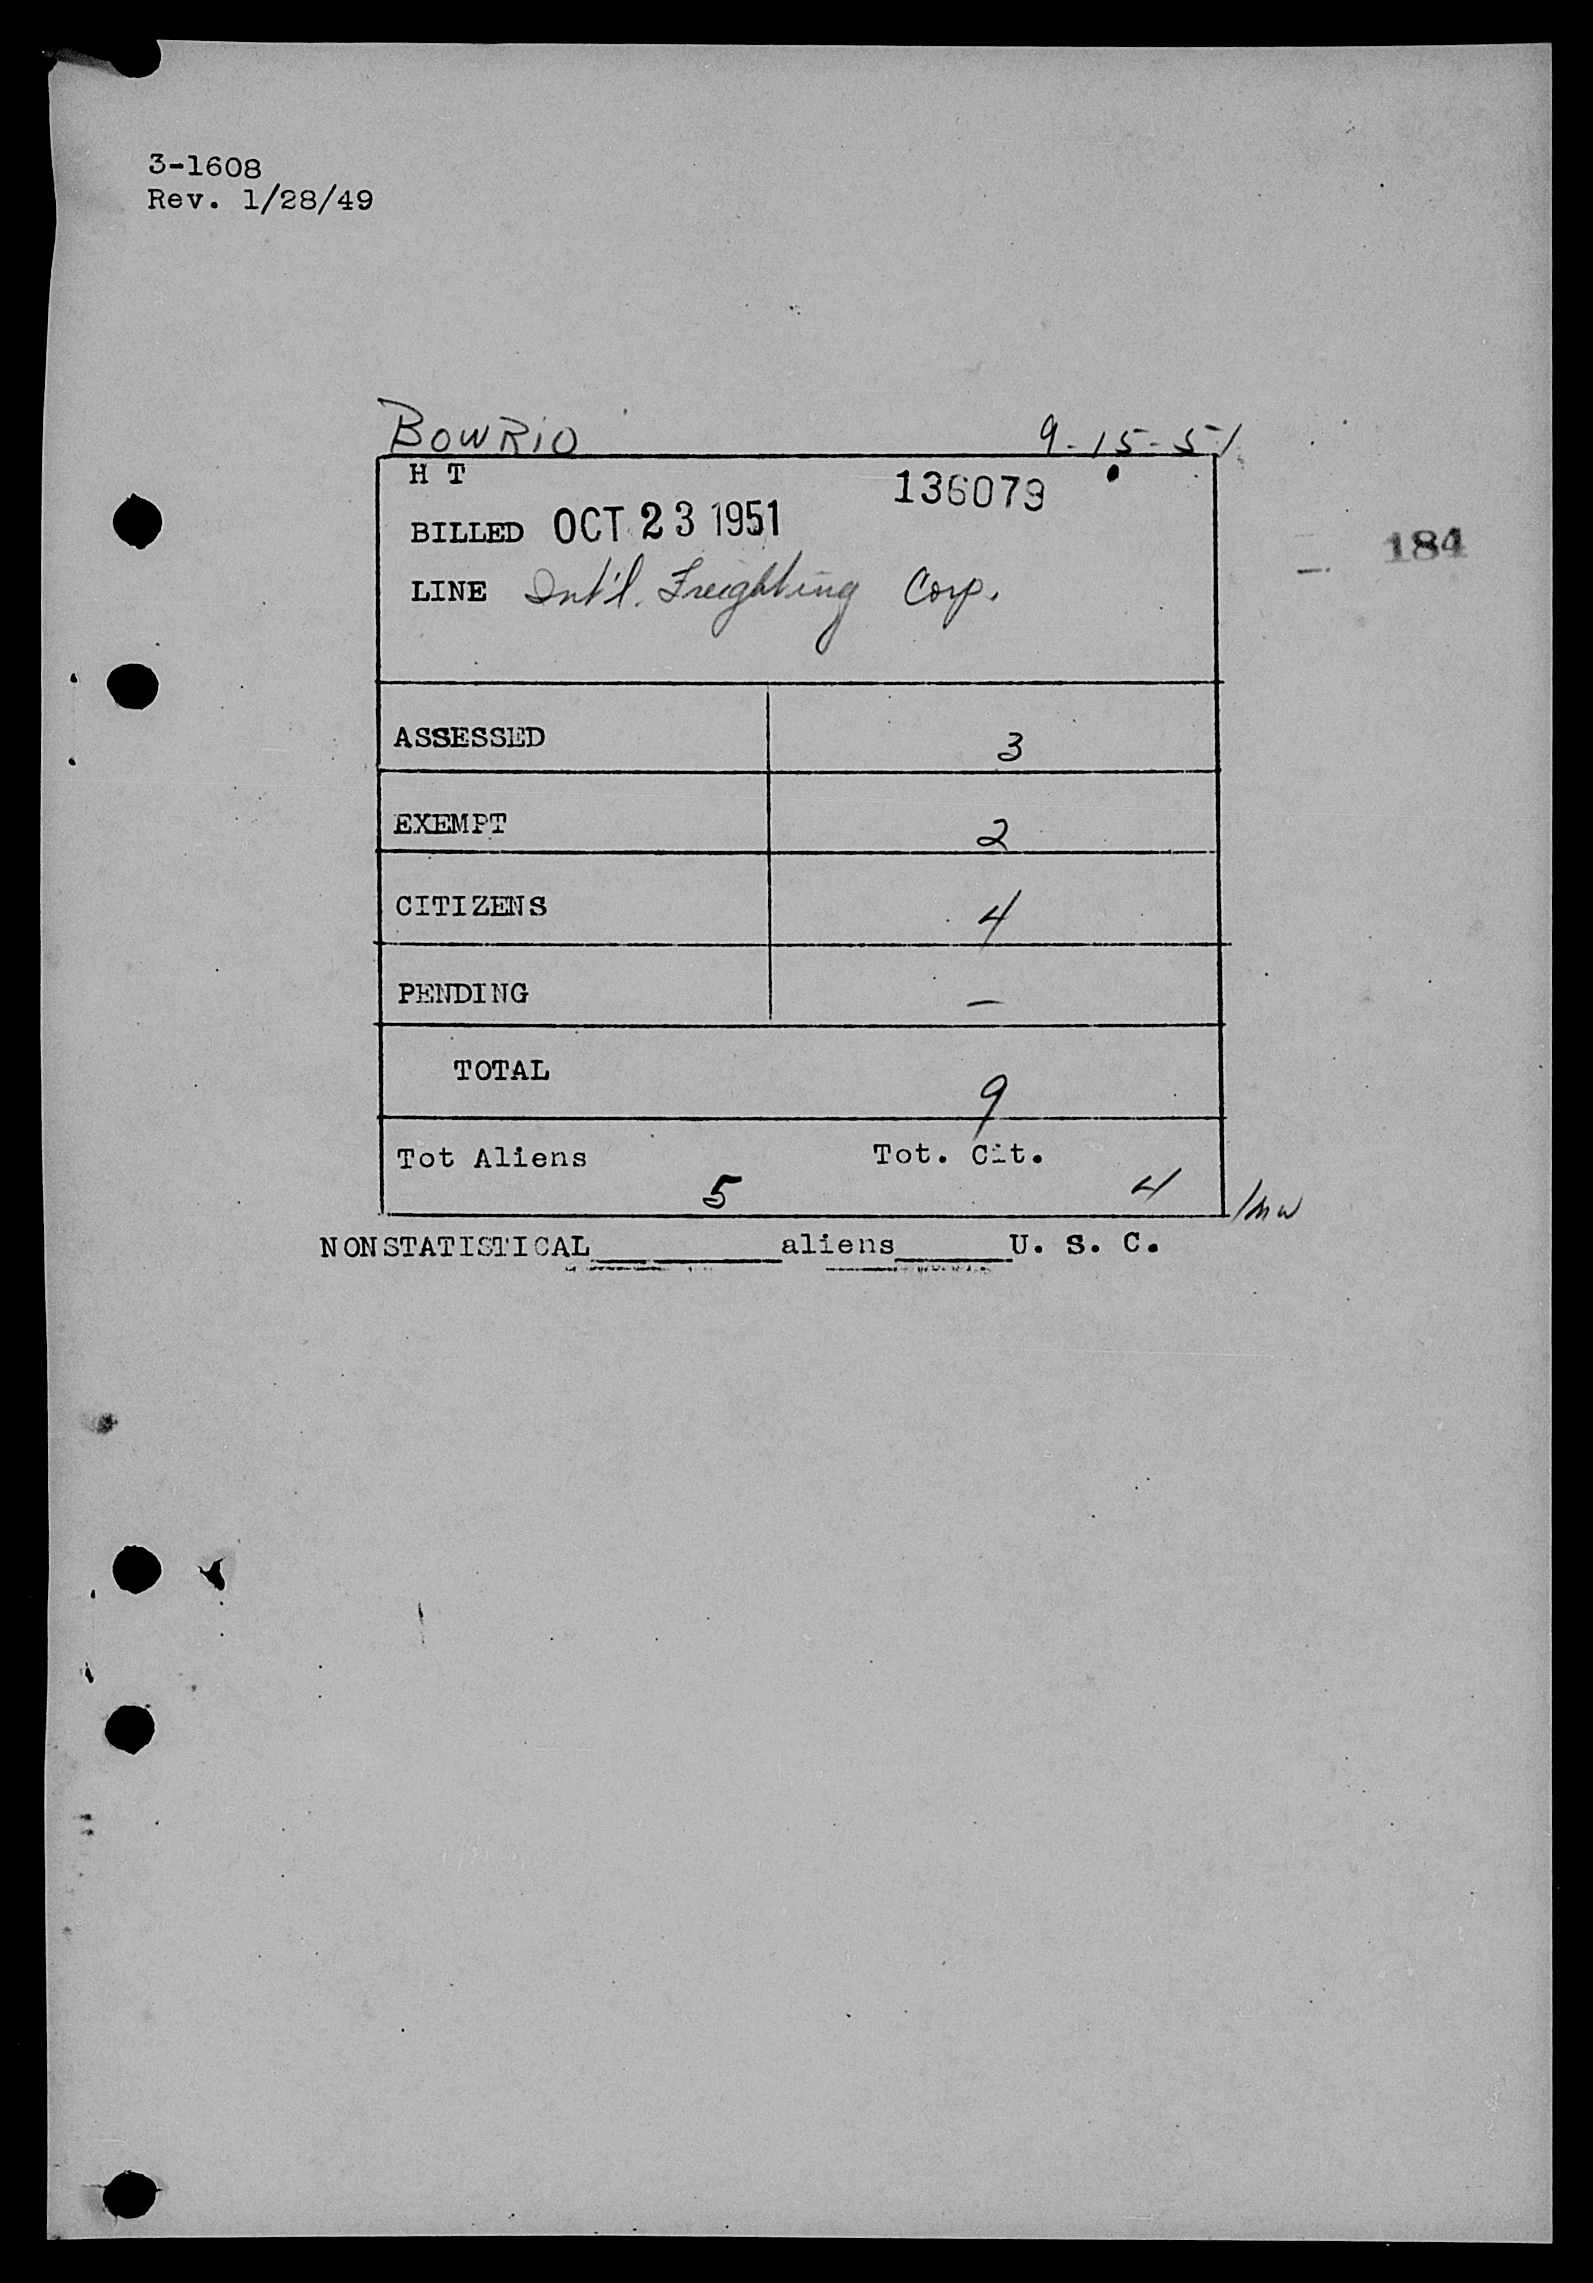 3-1608
Rev. 1/28/49
BOWRIO 9-15-51
H T 136079
BILLED OCT 23 1951
184
LINE Int'l. Freighting Corp.
ASSESSED 3
EXEMPT 2
CITIZENS 4
PENDING —
TOTAL 9
Tot Aliens 5 Tot. Cit. 4 /mw
NONSTATISTICAL________aliens_____U. S. C.